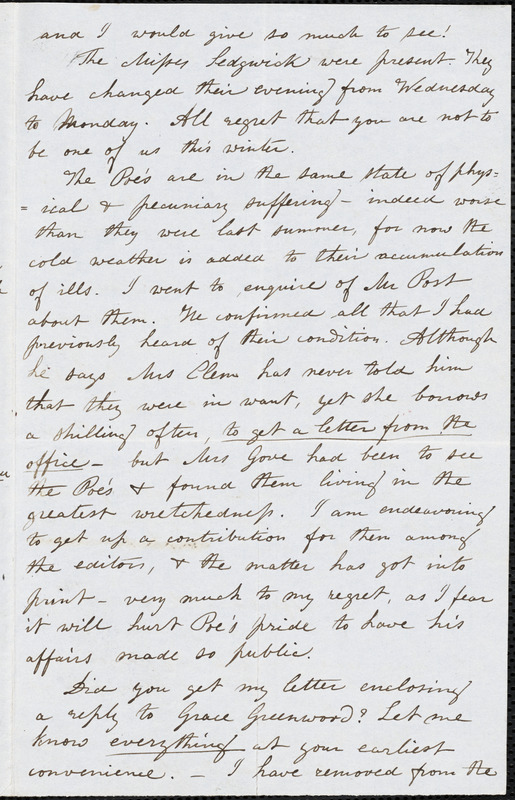 and I would give so much to see!
The Misses Sedgwick were present. They
have changed their evening from Wednesday
to Monday. All regret that you are not to
be one of us this winter.
The Poe's are in the same state of phys=
=ical & pecuniary suffering - indeed worse
than they were last summer, for now the
cold weather is added to their accumulation
of ills. I went to enquire of Mr Post
about them. He confirmed all that I had
previously heard of their condition. Although
he says Mrs Clem has never told him
that they were in want, yet she borrows
a shilling often, to get a letter from the
office - but Mrs Gove had been to see
the Poe's & found them living in the
greatest wretchedness. I am endeavoring
to get up a contribution for them among
the editors, & the matter has got into
print - very much to my regret, as I fear
it will hurt Poe's pride to have his
affairs made so public.
Did you get my letter enclosing
a reply to Grace Greenwood? Let me
know everything at your earliest
convenience. - I have removed from the